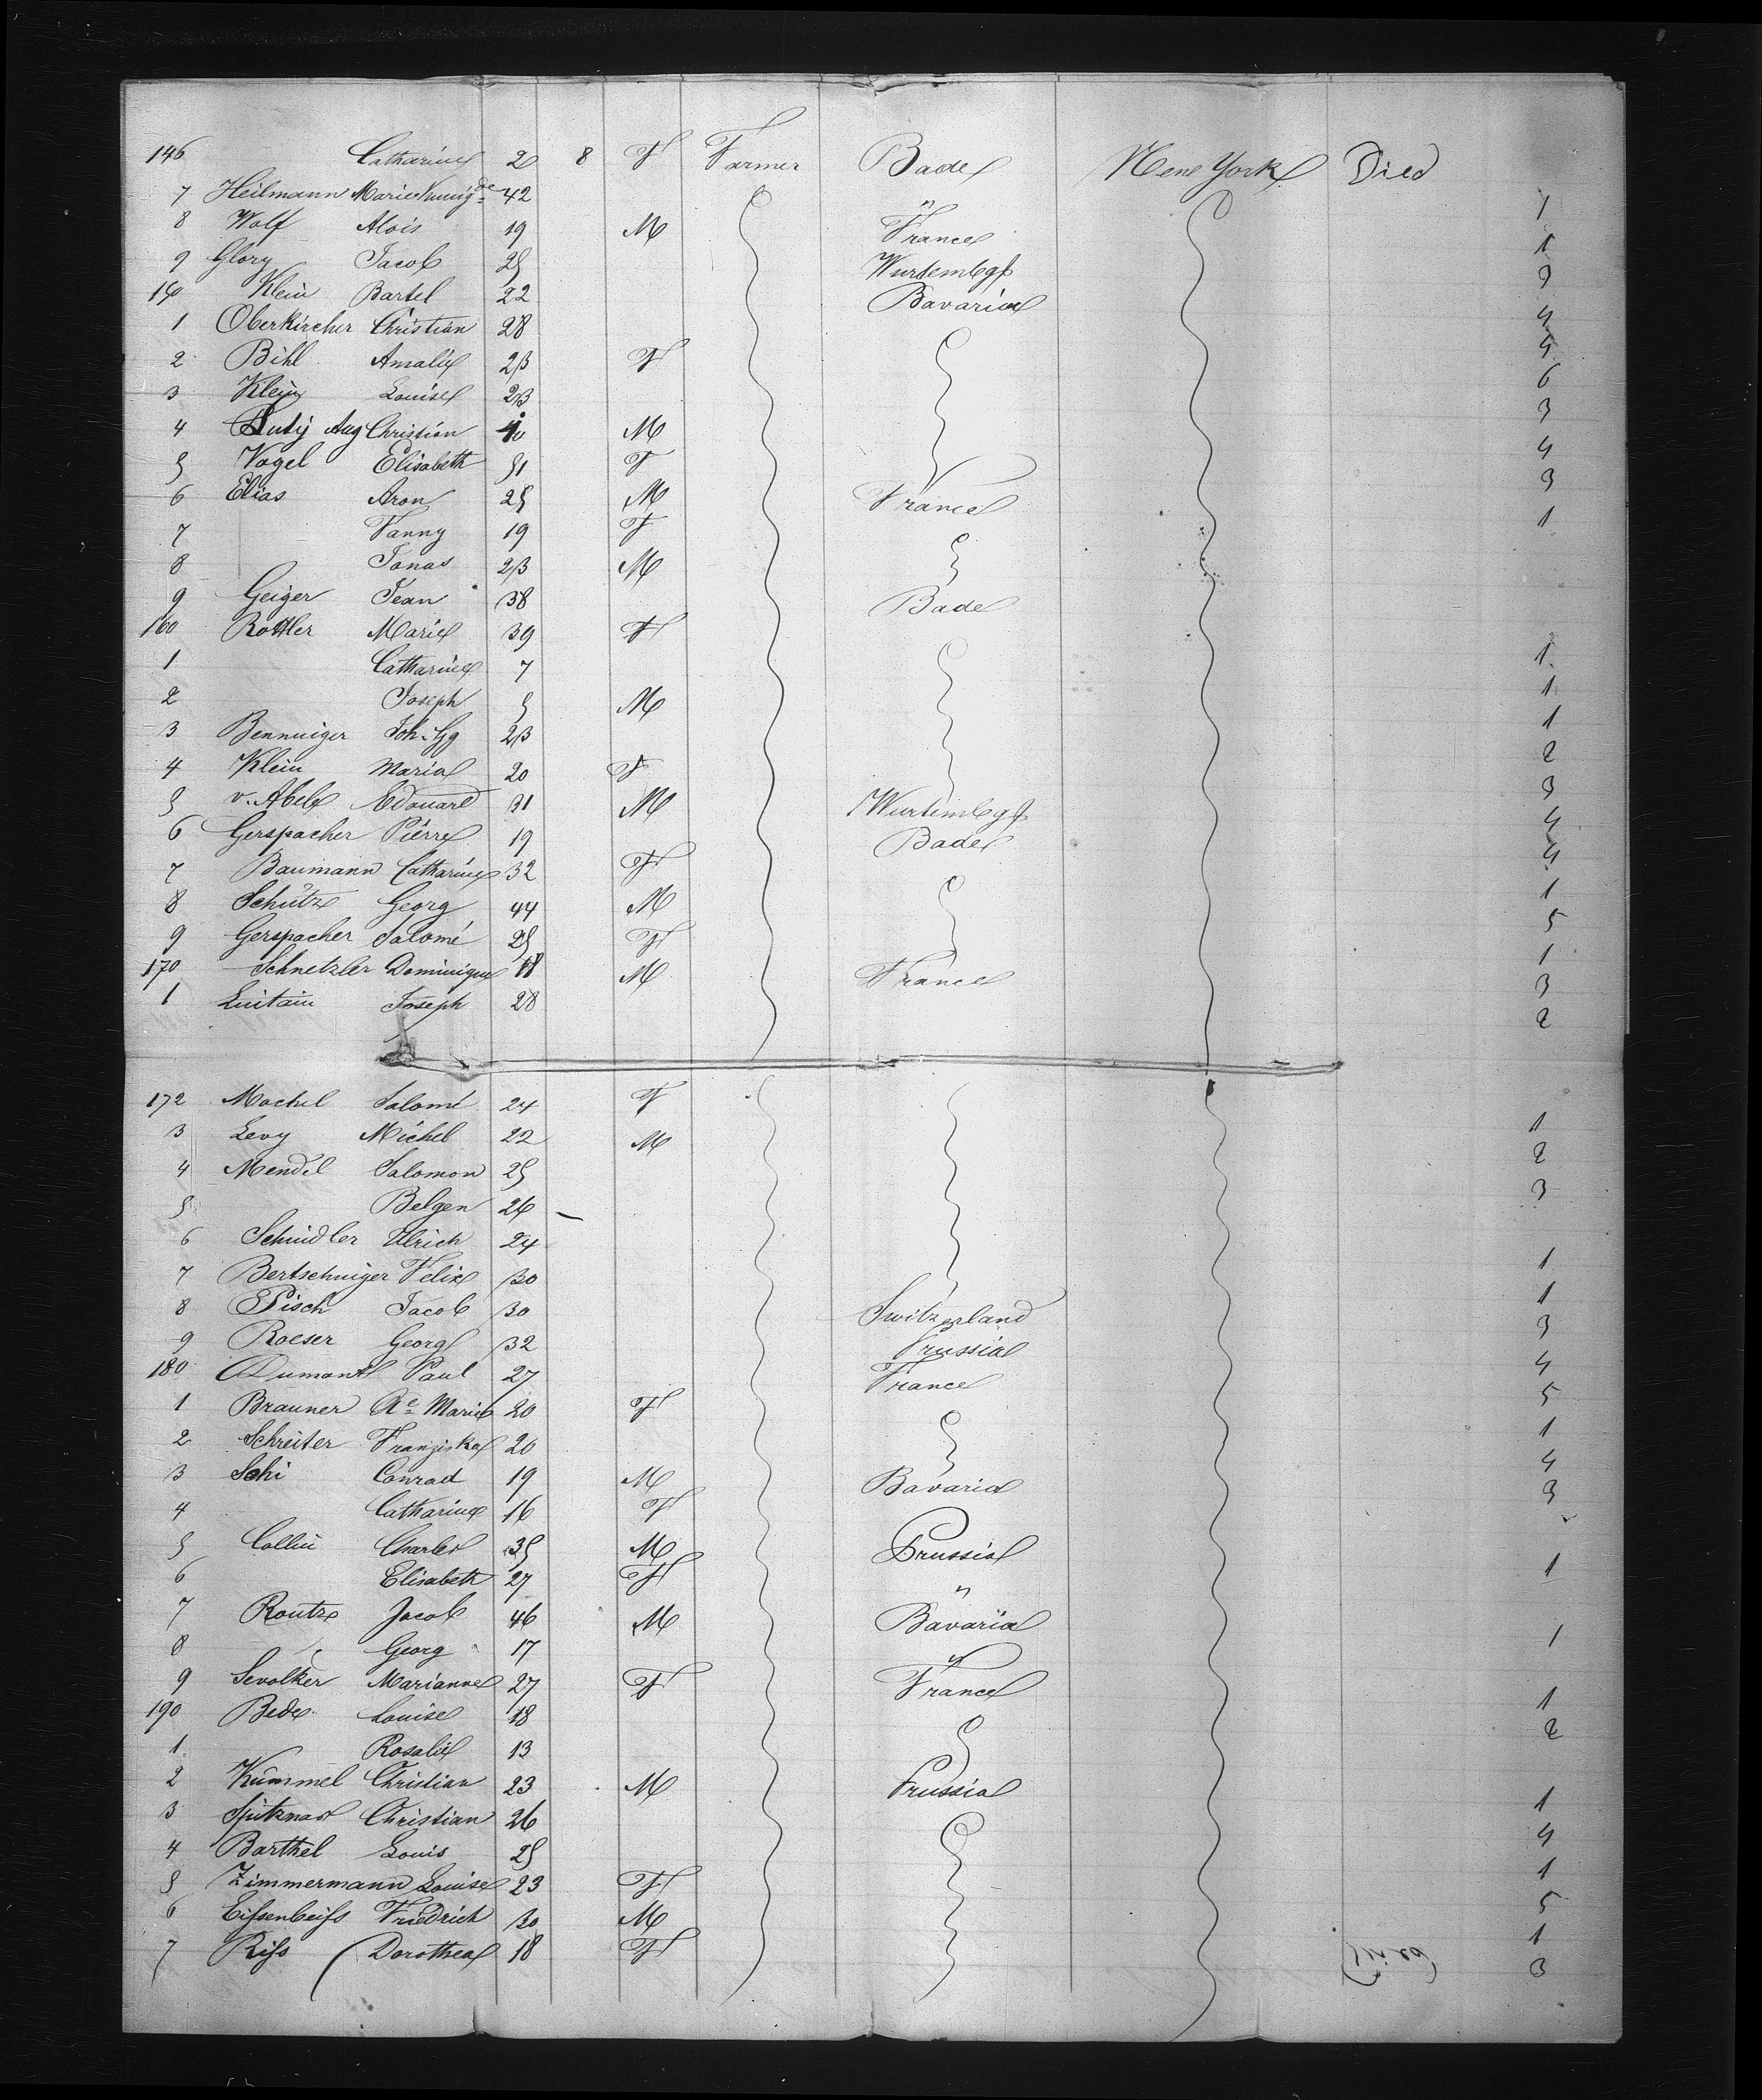 146 Catharine 2 8 F Farmer Bade New York Died
7 Heilmann Marie Kunigde 42 " 1
8 Wolf Alois 19 M France 1
9 Glory Jacob 25 Wurtembg 3
150 Klein Bartel 22 Bavaria 4
1 Oberkircher Christian 28 4
2 Bihl Amalie 23 F 6
3 Klein Louise 23 3
4 Aug Christian M 4
5 Vogel Elisabeth 51 F 3
6 Elias Aron 25 M France 1
7 Fanny 19 F
8 Jonas 23 M
9 Geiger Jean 38 Bade
160 Rottler Marie 39 F 1
1 Catharine 7 1
2 Joseph 5 M 1
3 Benninger Joh. Gg 23 2
4 Klein Maria 20 F 3
5 v. Abele Edouard 31 M Wurtembg 4
6 Gerspacher Pierre 19 Bade 4
7 Baumann Catharine 32 F 1
8 Schütz Georg 44 M 5
9 Gerspacher Salomé 25 F 1
170 Schnetzler Dominique 18 M France 3
1 Luitain Joseph 28 2
172 Mochel Salomé 24 F 1
3 Levy Michel 22 M 2
4 Mendel Salomon 25 3
5 Belgen 26
6 Schindler Ulrich 24 1
7 Bertschniger Felix 30 1
8 Pisch Jacob 30 Switzerland 3
9 Roeser Georg 32 Prussia 4
180 Dumont Paul 27 France 5
1 Brauner Ae Marie 20 F 1
2 Schreiter Franziska 20 4
3 Schi Conrad 19 M Bavaria 3
4 Catharine 16 F
5 Collin Charles 35 M Prussia 1
6 Elisabeth 27 F "
7 Routz Jacob 46 M Bavaria 1
8 Georg 17 "
9 Sevolker Marianne 27 F France 1
190 Bede Louise 18 2
1 Rosalie 13
2 Kümmel Christian 23 M Prussia 1
3 Spitznas Christian 26 4
4 Barthel Louis 25 1
5 Zimmermann Louise 23 F 5
6 Eissenbeiss Friedrich 30 M 1
7 Riss Dorothea 18 F 3